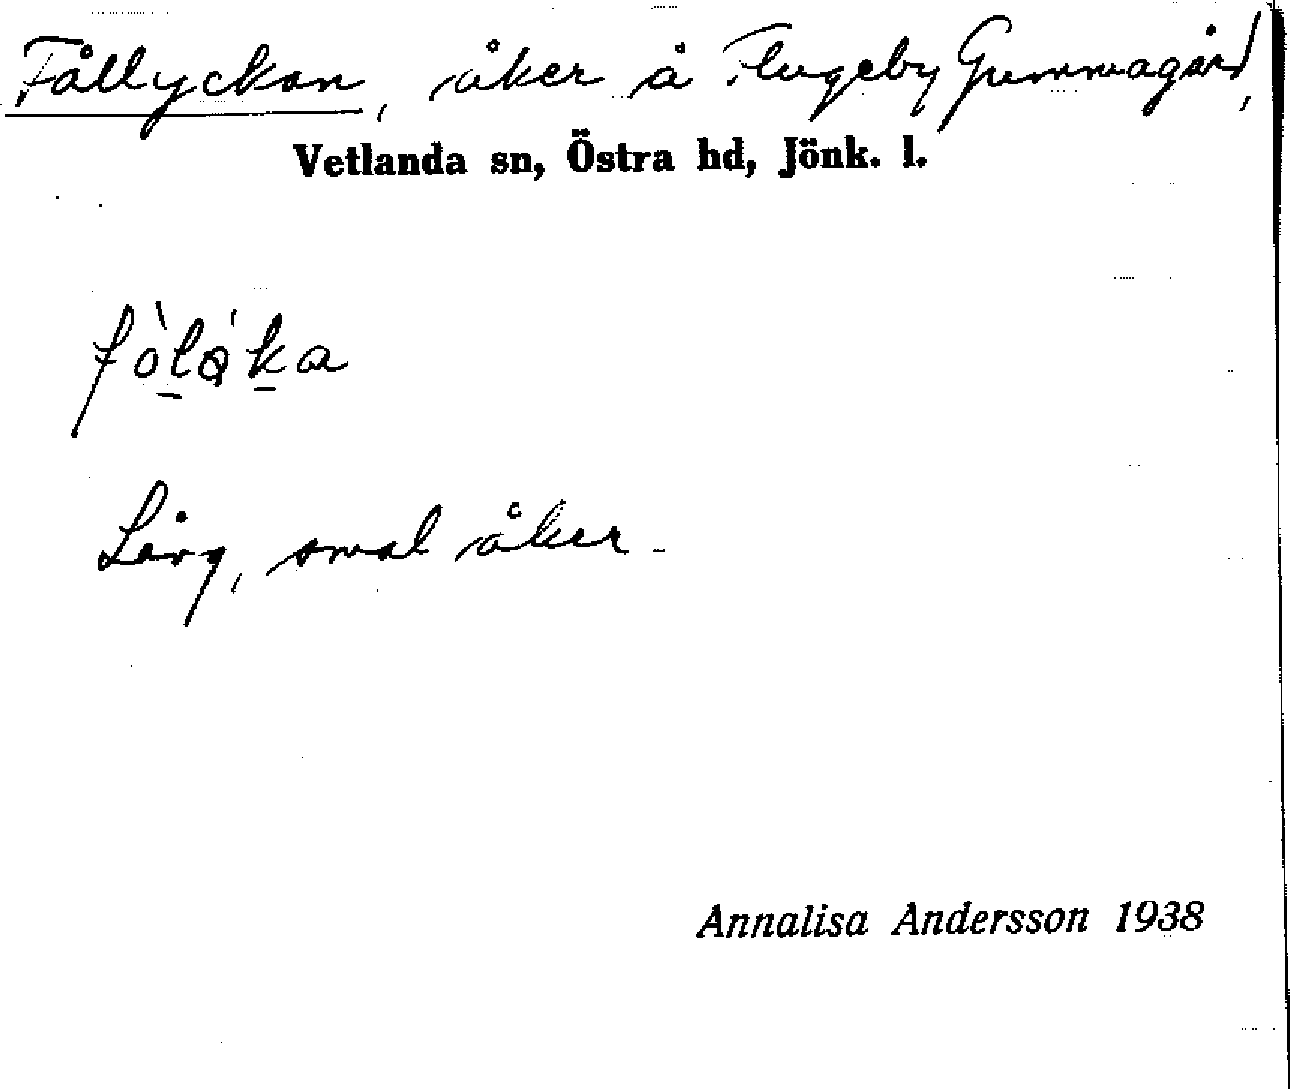 Fållyckan, åker å Flugeby Gummagård,
Vetlanda sn, Östra hd, Jönk. l.
Lång, smal åker.
Annalisa Andersson 1938